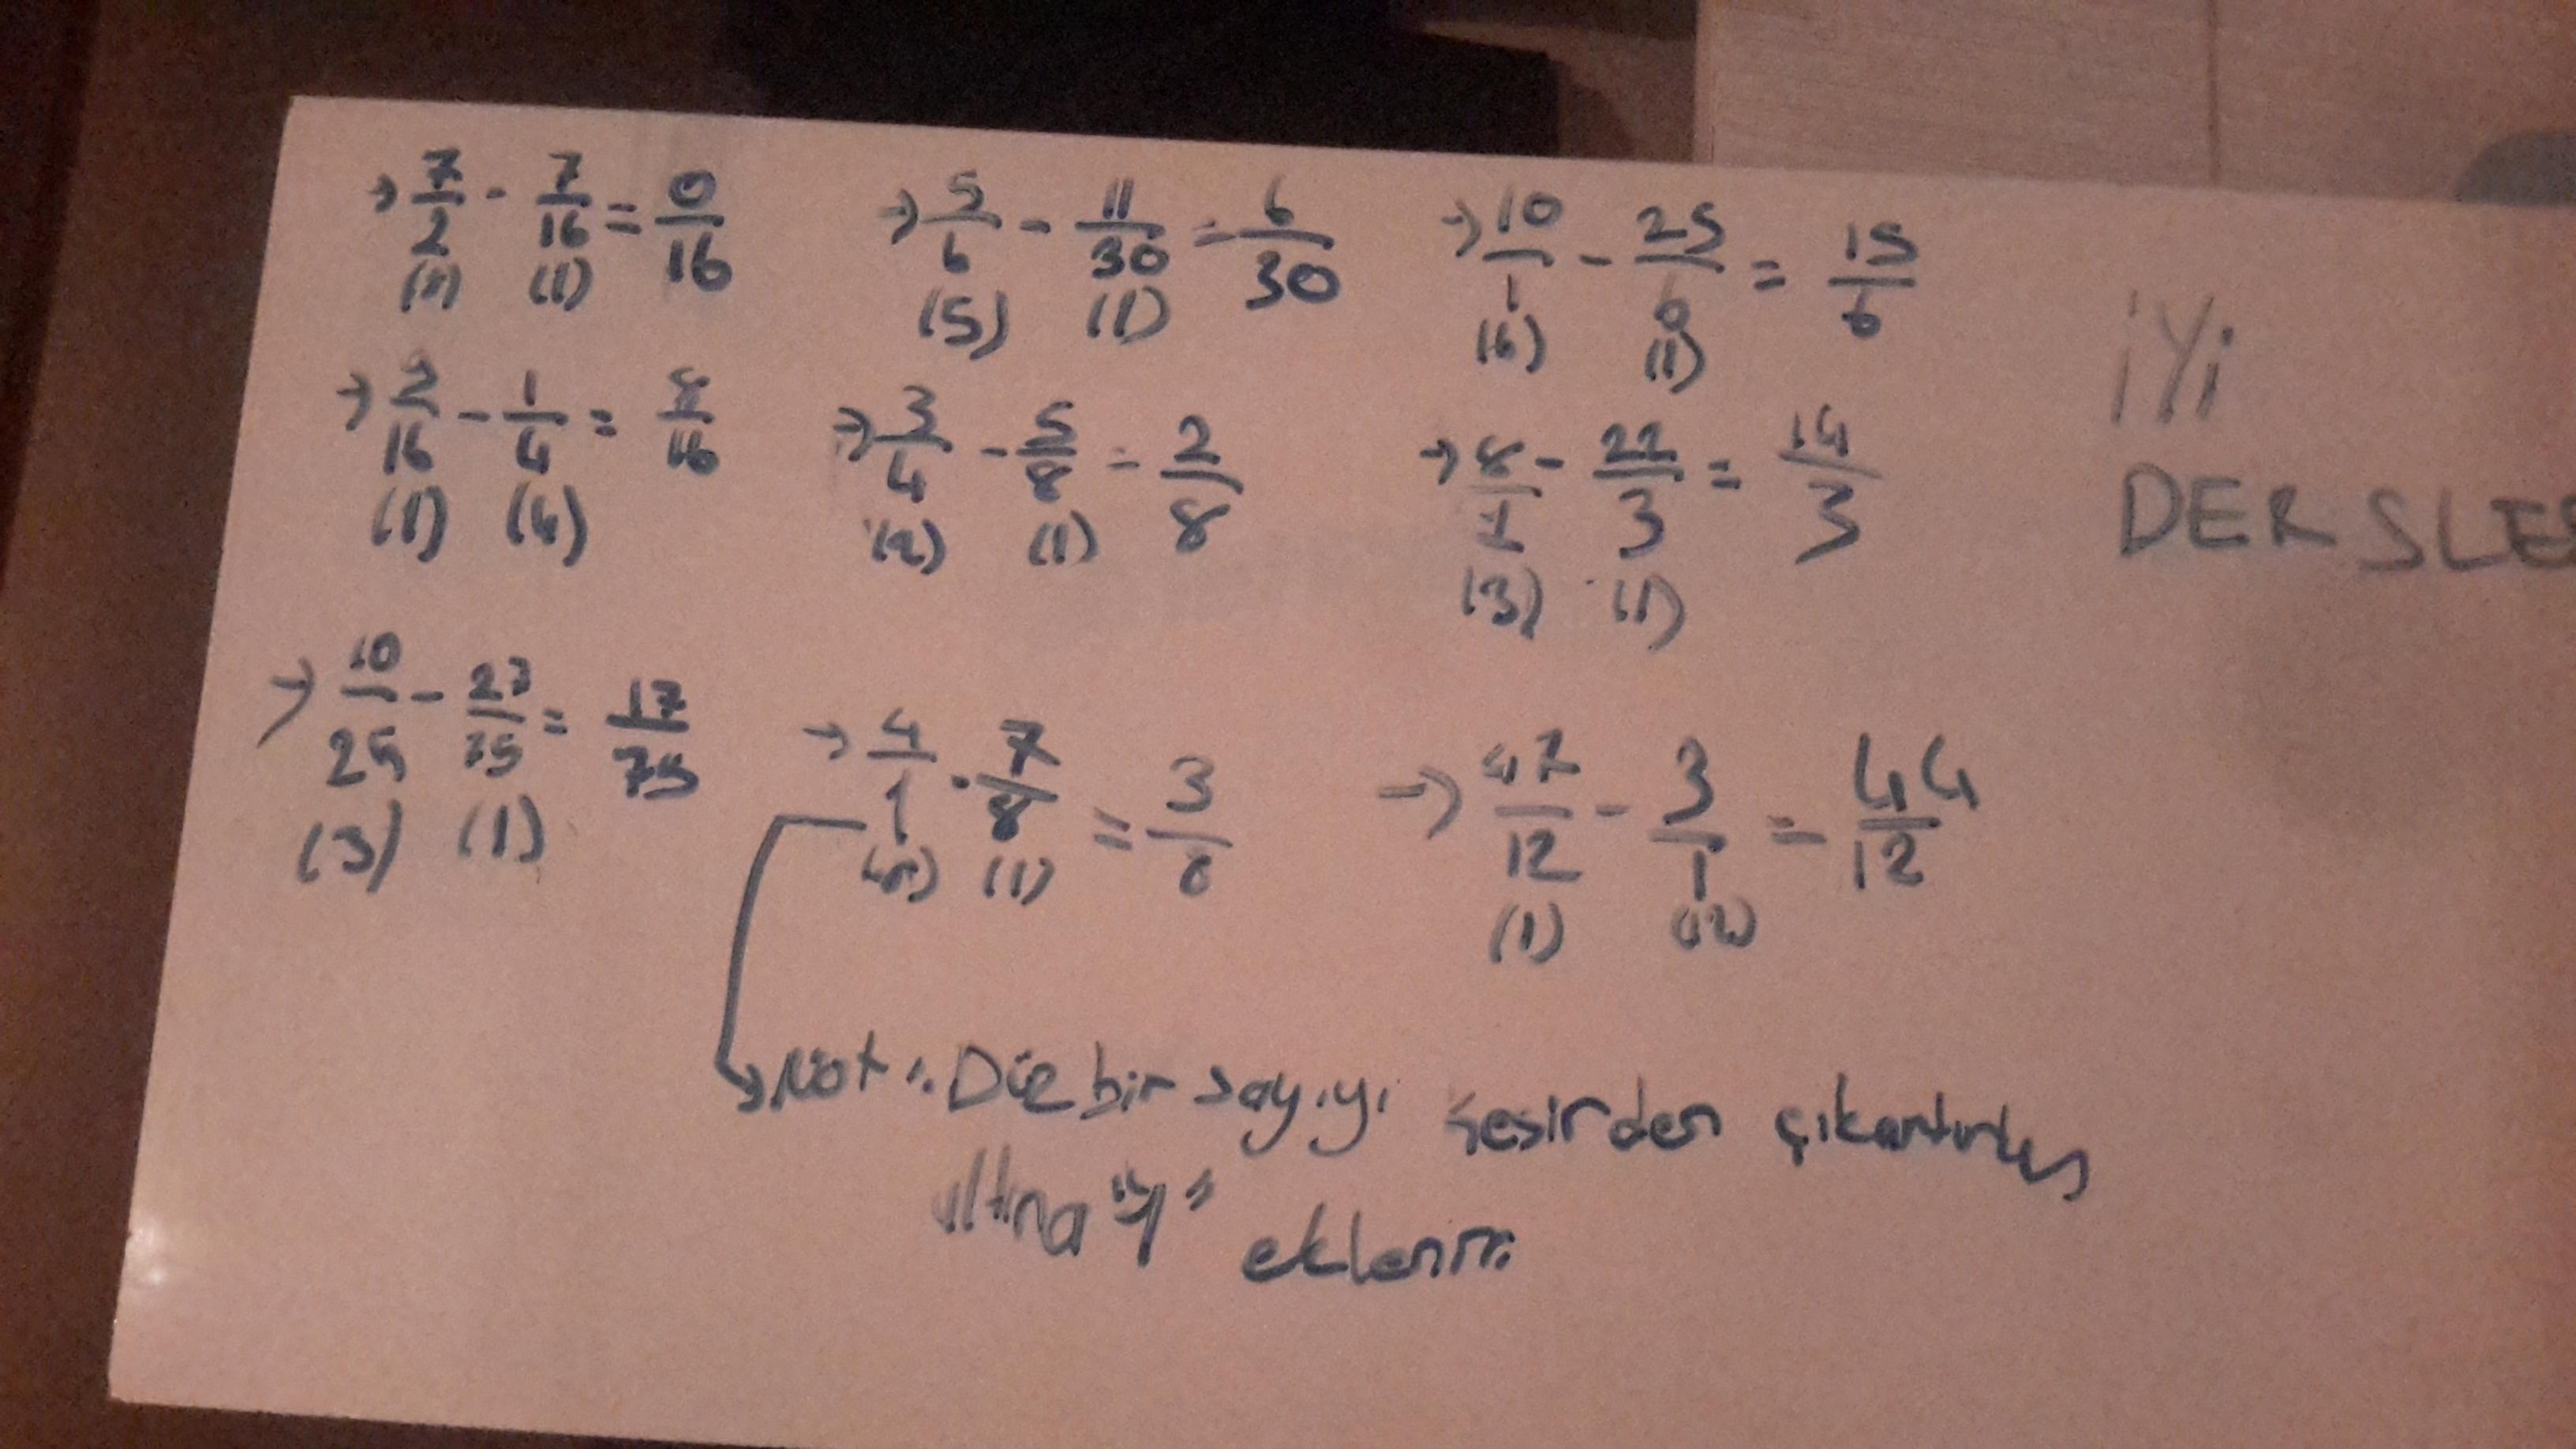 → 7/2 - 7/16 = 0/16
(8) (1)
→ 5/6 - 11/30 = 6/30
(5) (1)
→ 10/1 - 25/6 = 15/6
(6) (1)
iYi
DERSLE
→ 2/16 - 1/4 = 8/16
(1) (4)
→ 3/4 - 5/8 = 2/8
(2) (1)
→ 8/1 - 22/3 = 14/3
(3) (1)
→ 10/25 - 27/75 = 17/75
(3) (1)
→ 4/1 - 7/8 = 3/8
(8) (1)
→ 47/12 - 3/1 = 44/12
(1) (12)
→ Not: Düz bir sayıyı kesirden
altına "1" eklenir.